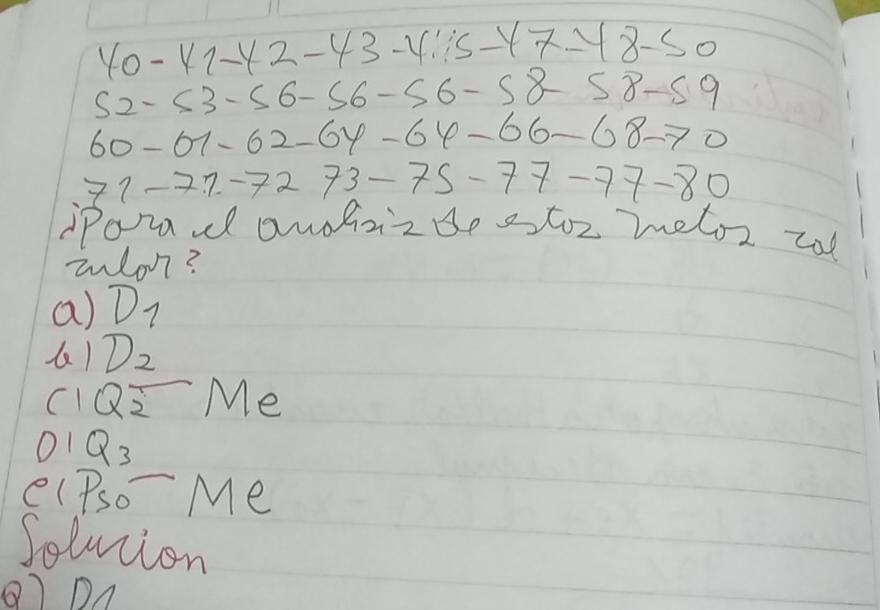 40-41-42-43-45-47-48-50
52-53-56-56-56-58-58-59
60-61-62-64-64-66-68-70
71-71-72 73-75-77-77-80
¿Para el analisiz de estoz metoz cal
cular?
a) D1
b) D2
c) Q2 — Me
D) Q3
e) P50 — Me
Solucion
a) D1